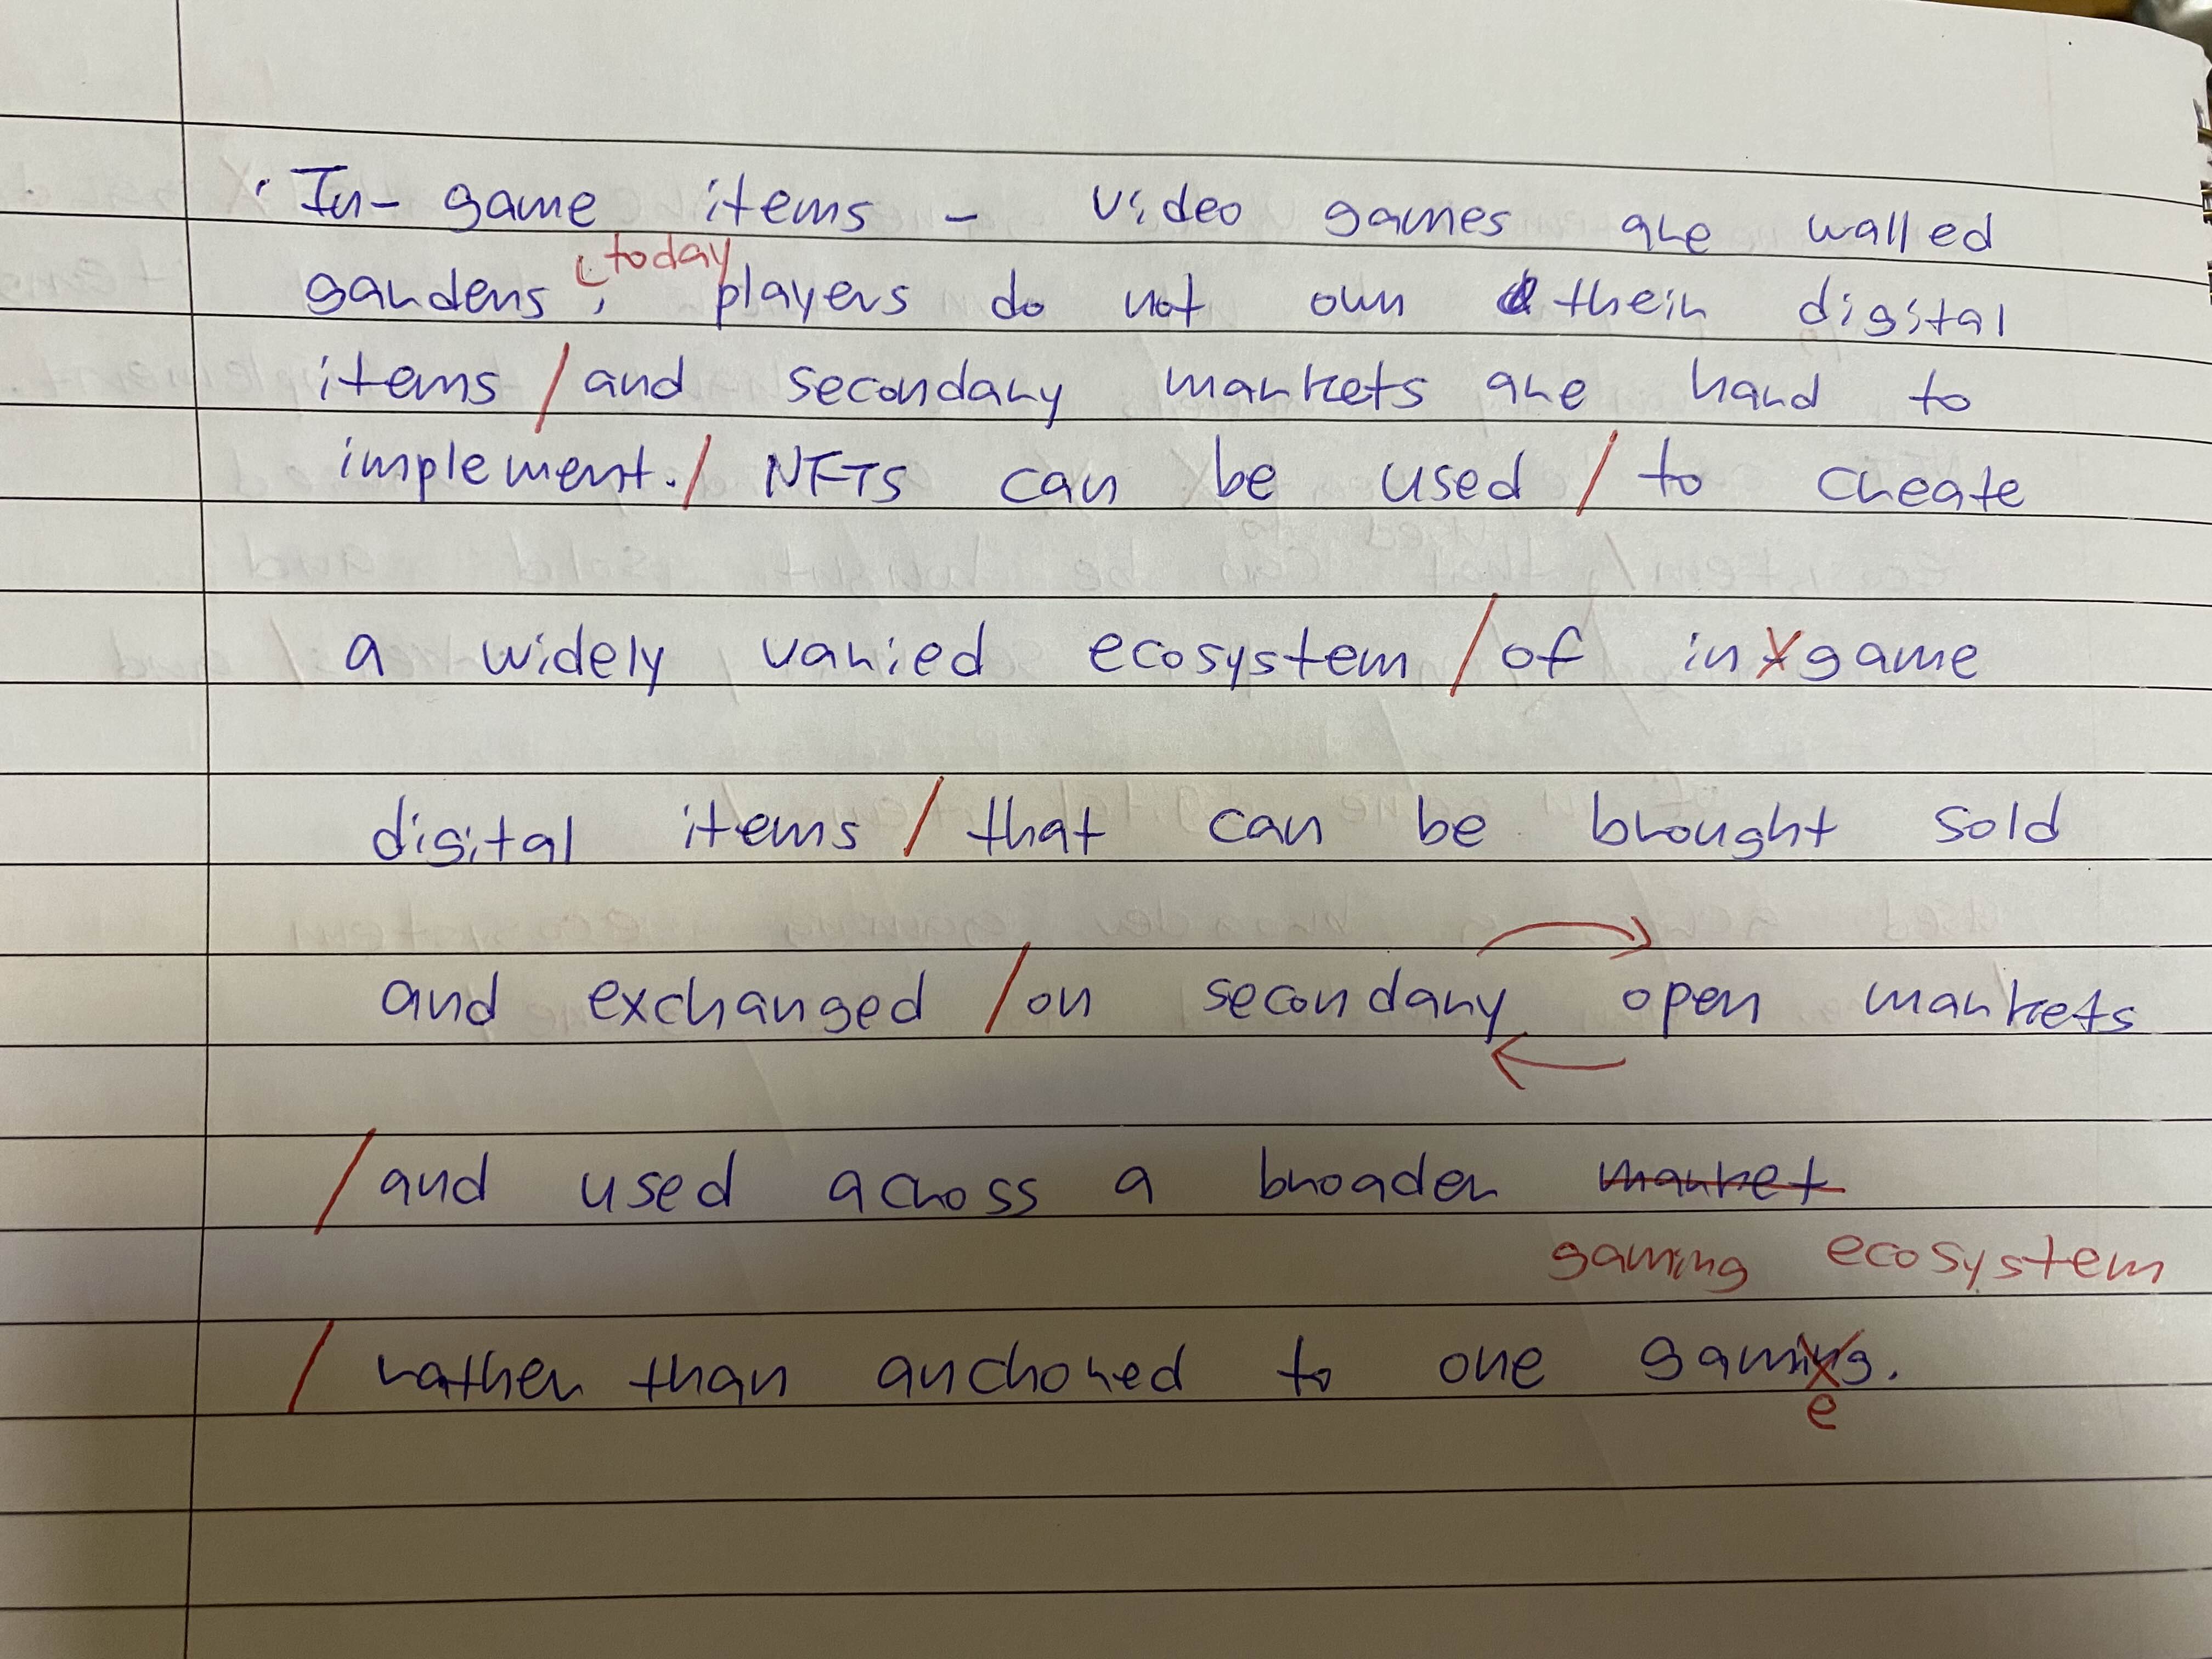 · In- game items - video games are walled
today
gardens , players do not own their digital
items / and secondary markets are hard to
implement. / NFTs can be used / to create
a widely varied ecosystem / of in-game
digital items / that can be brought sold
and exchanged / on secondary open markets
/ and used across a broader market
gaming ecosystem
/ rather than anchored to one gaming.
e